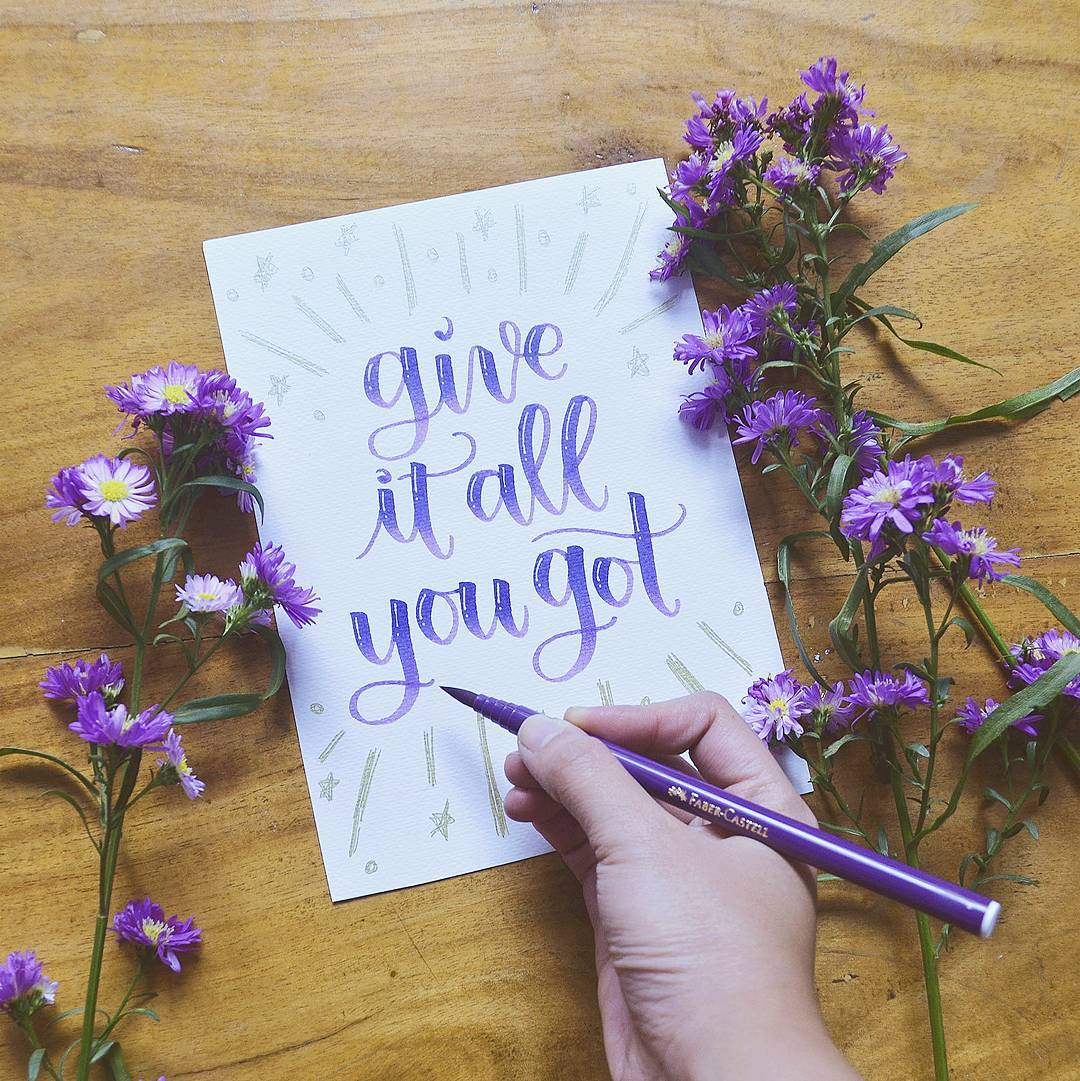 give
it all
you got
FABER-CASTELL